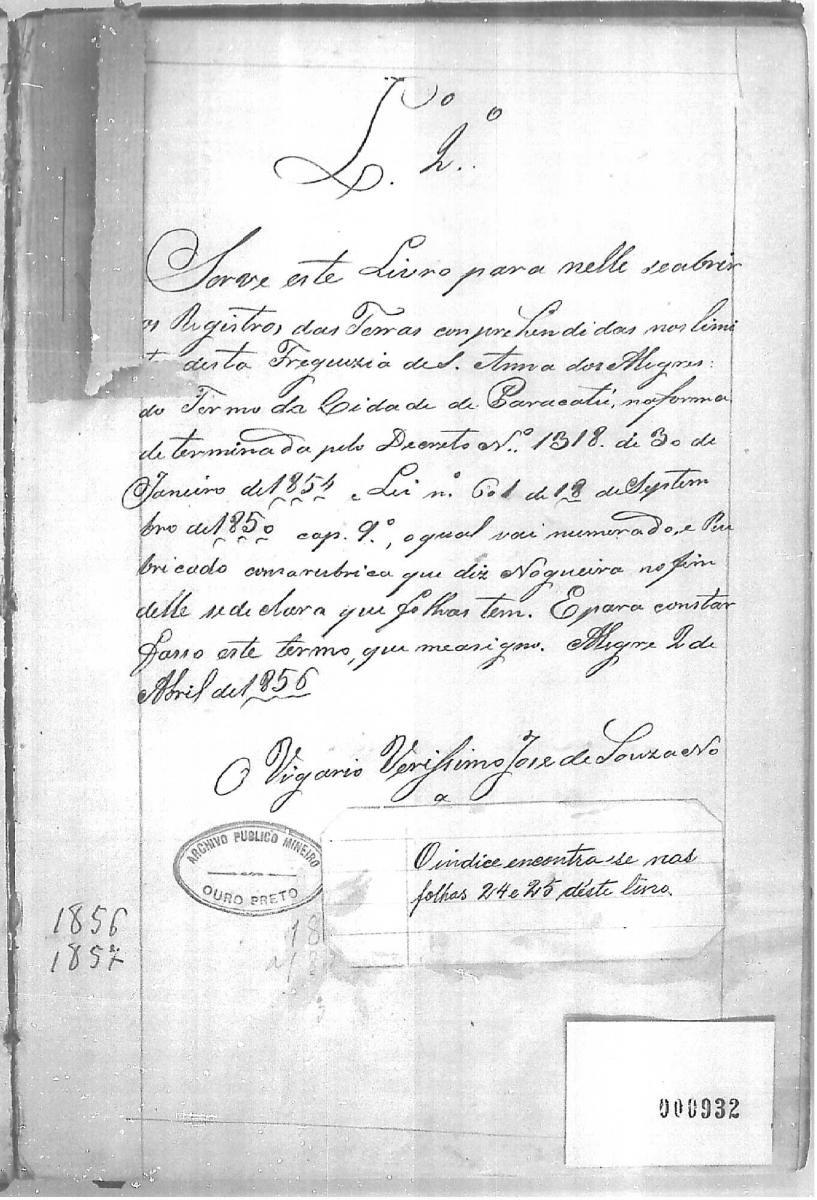 L.º 2.º
Serve este Livro para nelle se abrir
os Registros das Terras comprehendidas nos limi
t desta Freguezia de S. Anna dos Alegres:
do Termo da Cidade de Paracatú, na forma
determinada pelo Decreto Nº. 1318. de 30 de
Janeiro de 1854 e Lei nº 601 de 18 de Septem
bro de 1850 cap. 9.º, o qual vai numerado, e Ru
bricado com a rubrica que diz Nogueira no fim
delle se declara que folhas tem. E para constar
passo este termo, que me asigno. Alegre 2 de
Abril de 1856
O Vigario Verissimo Jose de Souza No
a
ARCHIVO PUBLICO MINEIRO
OURO PRETO
O indice encontra-se nas
folhas 24 e 25 déste livro.
1856
1857
18
000932